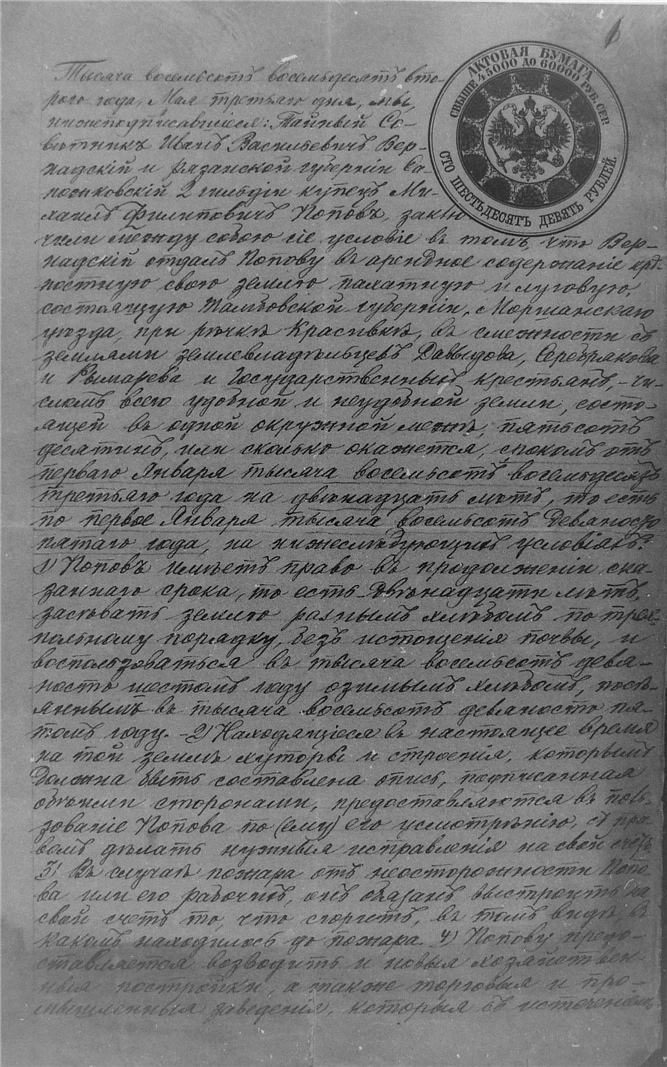 АКТОВАЯ БУМАГА
СВЫШЕ 45000 ДО 60000 РУБ. СЕР.
СТО ШЕСТЬДЕСЯТЪ ДЕВЯТЬ РУБЛЕЙ.
Тысяча восемьсотъ восемьдесятъ вто-
рого года, Мая третьяго дня, мы,
нижеподписавшіеся: Тайный Со-
вѣтникъ Иванъ Васильевичъ Вер-
надскій и Рязанской губерніи Са-
пожковскій 2 гильдіи купецъ Ми-
хаилъ Филиповичъ Поповъ, заклю-
чили между собою сіе условіе въ томъ, что Вер-
надскій отдалъ Попову въ арендное содержаніе крѣ-
постную свою землю пахатную и луговую,
состоящую Тамбовской губерніи, Моршанскаго
уѣзда, при рѣчкѣ Красивкѣ, въ смежности съ
землями землевладѣльцевъ Давыдова, Серебрякова
и Рымарева и Государственныхъ крестьянъ, - чи-
сломъ всего удобной и неудобной земли, состо-
ящей въ одной окружной межѣ, пятьсотъ
десятинъ, или сколько окажется, срокомъ отъ
перваго Января тысяча восемьсотъ восемьдесятъ
третьяго года на двѣнадцать лѣтъ, то есть
по первое Января тысяча восемьсотъ девяносто
пятаго года, на нижеслѣдующихъ условіяхъ:
1) Поповъ имѣетъ право въ продолженіи ска-
заннаго срока, то есть двѣнадцати лѣтъ,
засѣвать землю разнымъ хлѣбомъ по трех-
польному порядку, безъ истощенія почвы, и
воспользоваться въ тысяча восемьсотъ девя-
ность шестомъ году озимымъ хлѣбомъ, посѣ-
яннымъ въ тысяча восемьсотъ девяносто пя-
томъ году. - 2) Находящіеся въ настоящее время
на той землѣ хуторъ и строенія, которымъ
должна быть составлена опись, подписанная
обѣими сторонами, предоставляются въ поль-
зованіе Попова по (ему) его усмотрѣнію, съ пра-
вомъ дѣлать нужныя исправленія на свой счетъ
3) Въ случаѣ пожара отъ неосторожности Попо-
ва или его рабочихъ, онъ обязанъ выстроить на
свой счетъ то, что сгоритъ, въ томъ видѣ, въ
какомъ находилось до пожара. 4) Попову предо-
ставляется возводить и новыя хозяйствен-
ныя постройки, а также торговыя и про-
мышленныя заведенія, которыя въ истеченіи